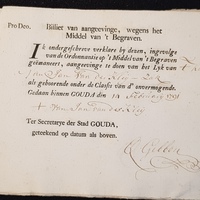 Pro Deo. Billiet van aangeevinge, wegens het
Middel van 't Begraven.
Ik ondergeschreve verklare by dezen, ingevolge
van de Ordonnantie op 't Middel van 't Begraven
geëmaneert, aangeevinge te doen van het Lyk van
Jan van der
als gehoorende onder de Classis van d' onvermogende.
Gedaan binnen GOUDA den 14 February 1791
Ter Secretarye der Stad GOUDA,
geteekend op datum als boven.